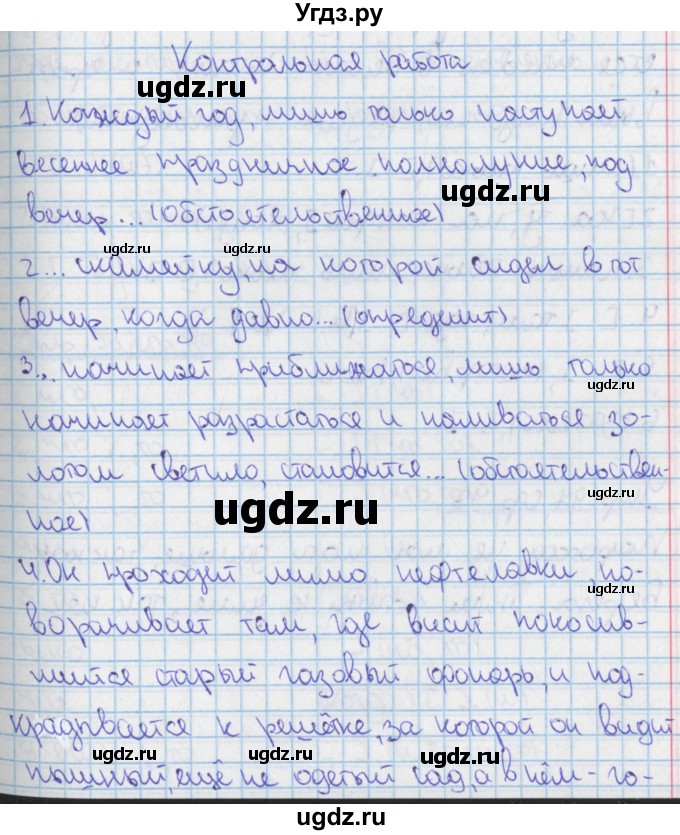 Угдз.ру
Контрольная работа
1. Каждый год, лишь только наступает
весеннее праздничное полнолуние, под
вечер... (обстоятельственное)
2... скамейку, на которой сидел в тот
вечер, когда давно... (определит)
3... начинает приближаться, лишь только
начинает разрастаться и наливаться зо-
лотом светило, становится... (обстоятельствен-
ное)
4. Он проходит мимо нефтелавки, по-
ворачивает там, где висит покосив-
шийся старый газовый фонарь, и под-
крадывается к решётке, за которой он видит
пышный, ещё не одетый сад, а в нём - го-
ugdz.ru
ugdz.ru
ugdz.ru
ugdz.ru
ugdz.ru
ugdz.ru
ugdz.ru
ugdz.ru
ugdz.ru
ugdz.ru
ugdz.ru
ugdz.ru
ugdz.ru